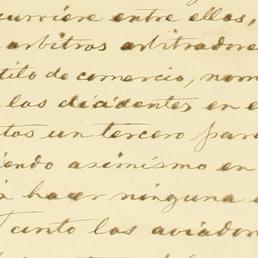 curriere entre ellos,
arbitros arbitradore
tilo de comercio, nom
los dicidentes en e
tos un tercero para
iendo asimismo en
hacer ninguna
Tanto los aviador